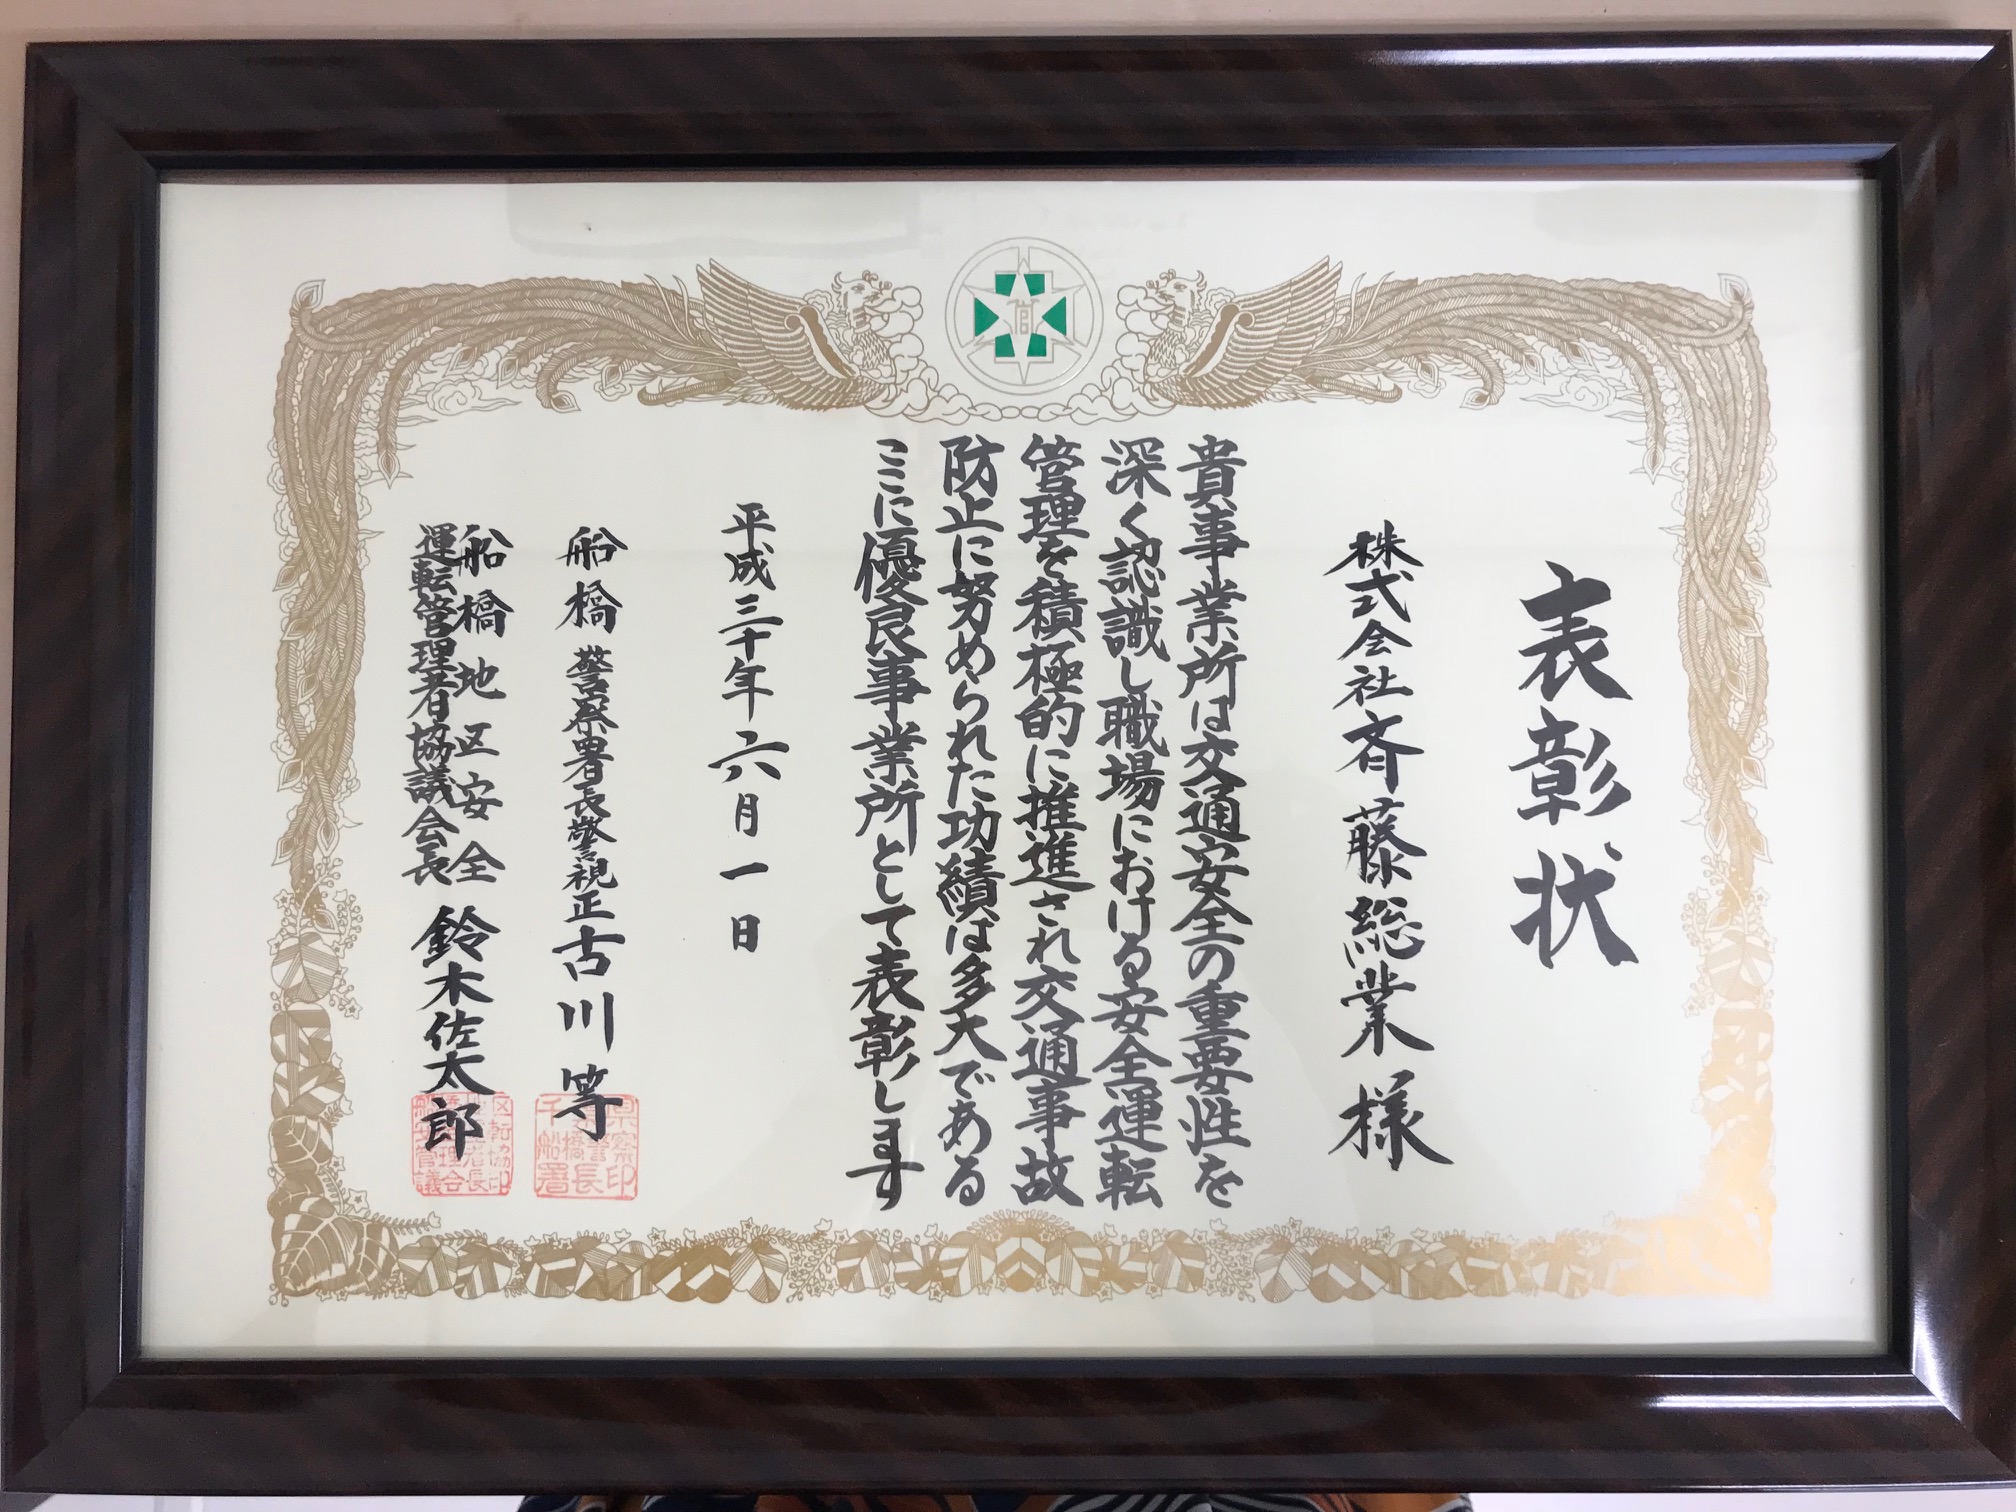 表彰状
株式会社斉藤総業様
貴事業所は交通安全の重要性を
深く認識し職場における安全運転
管理を積極的に推進され交通事故
防止に努められた功績は多大である
ここに優良事業所として表彰します
平成三十年六月一日
船橋警察署長警視正古川等
船橋地区安全
運転管理者協議会長鈴木佐太郎